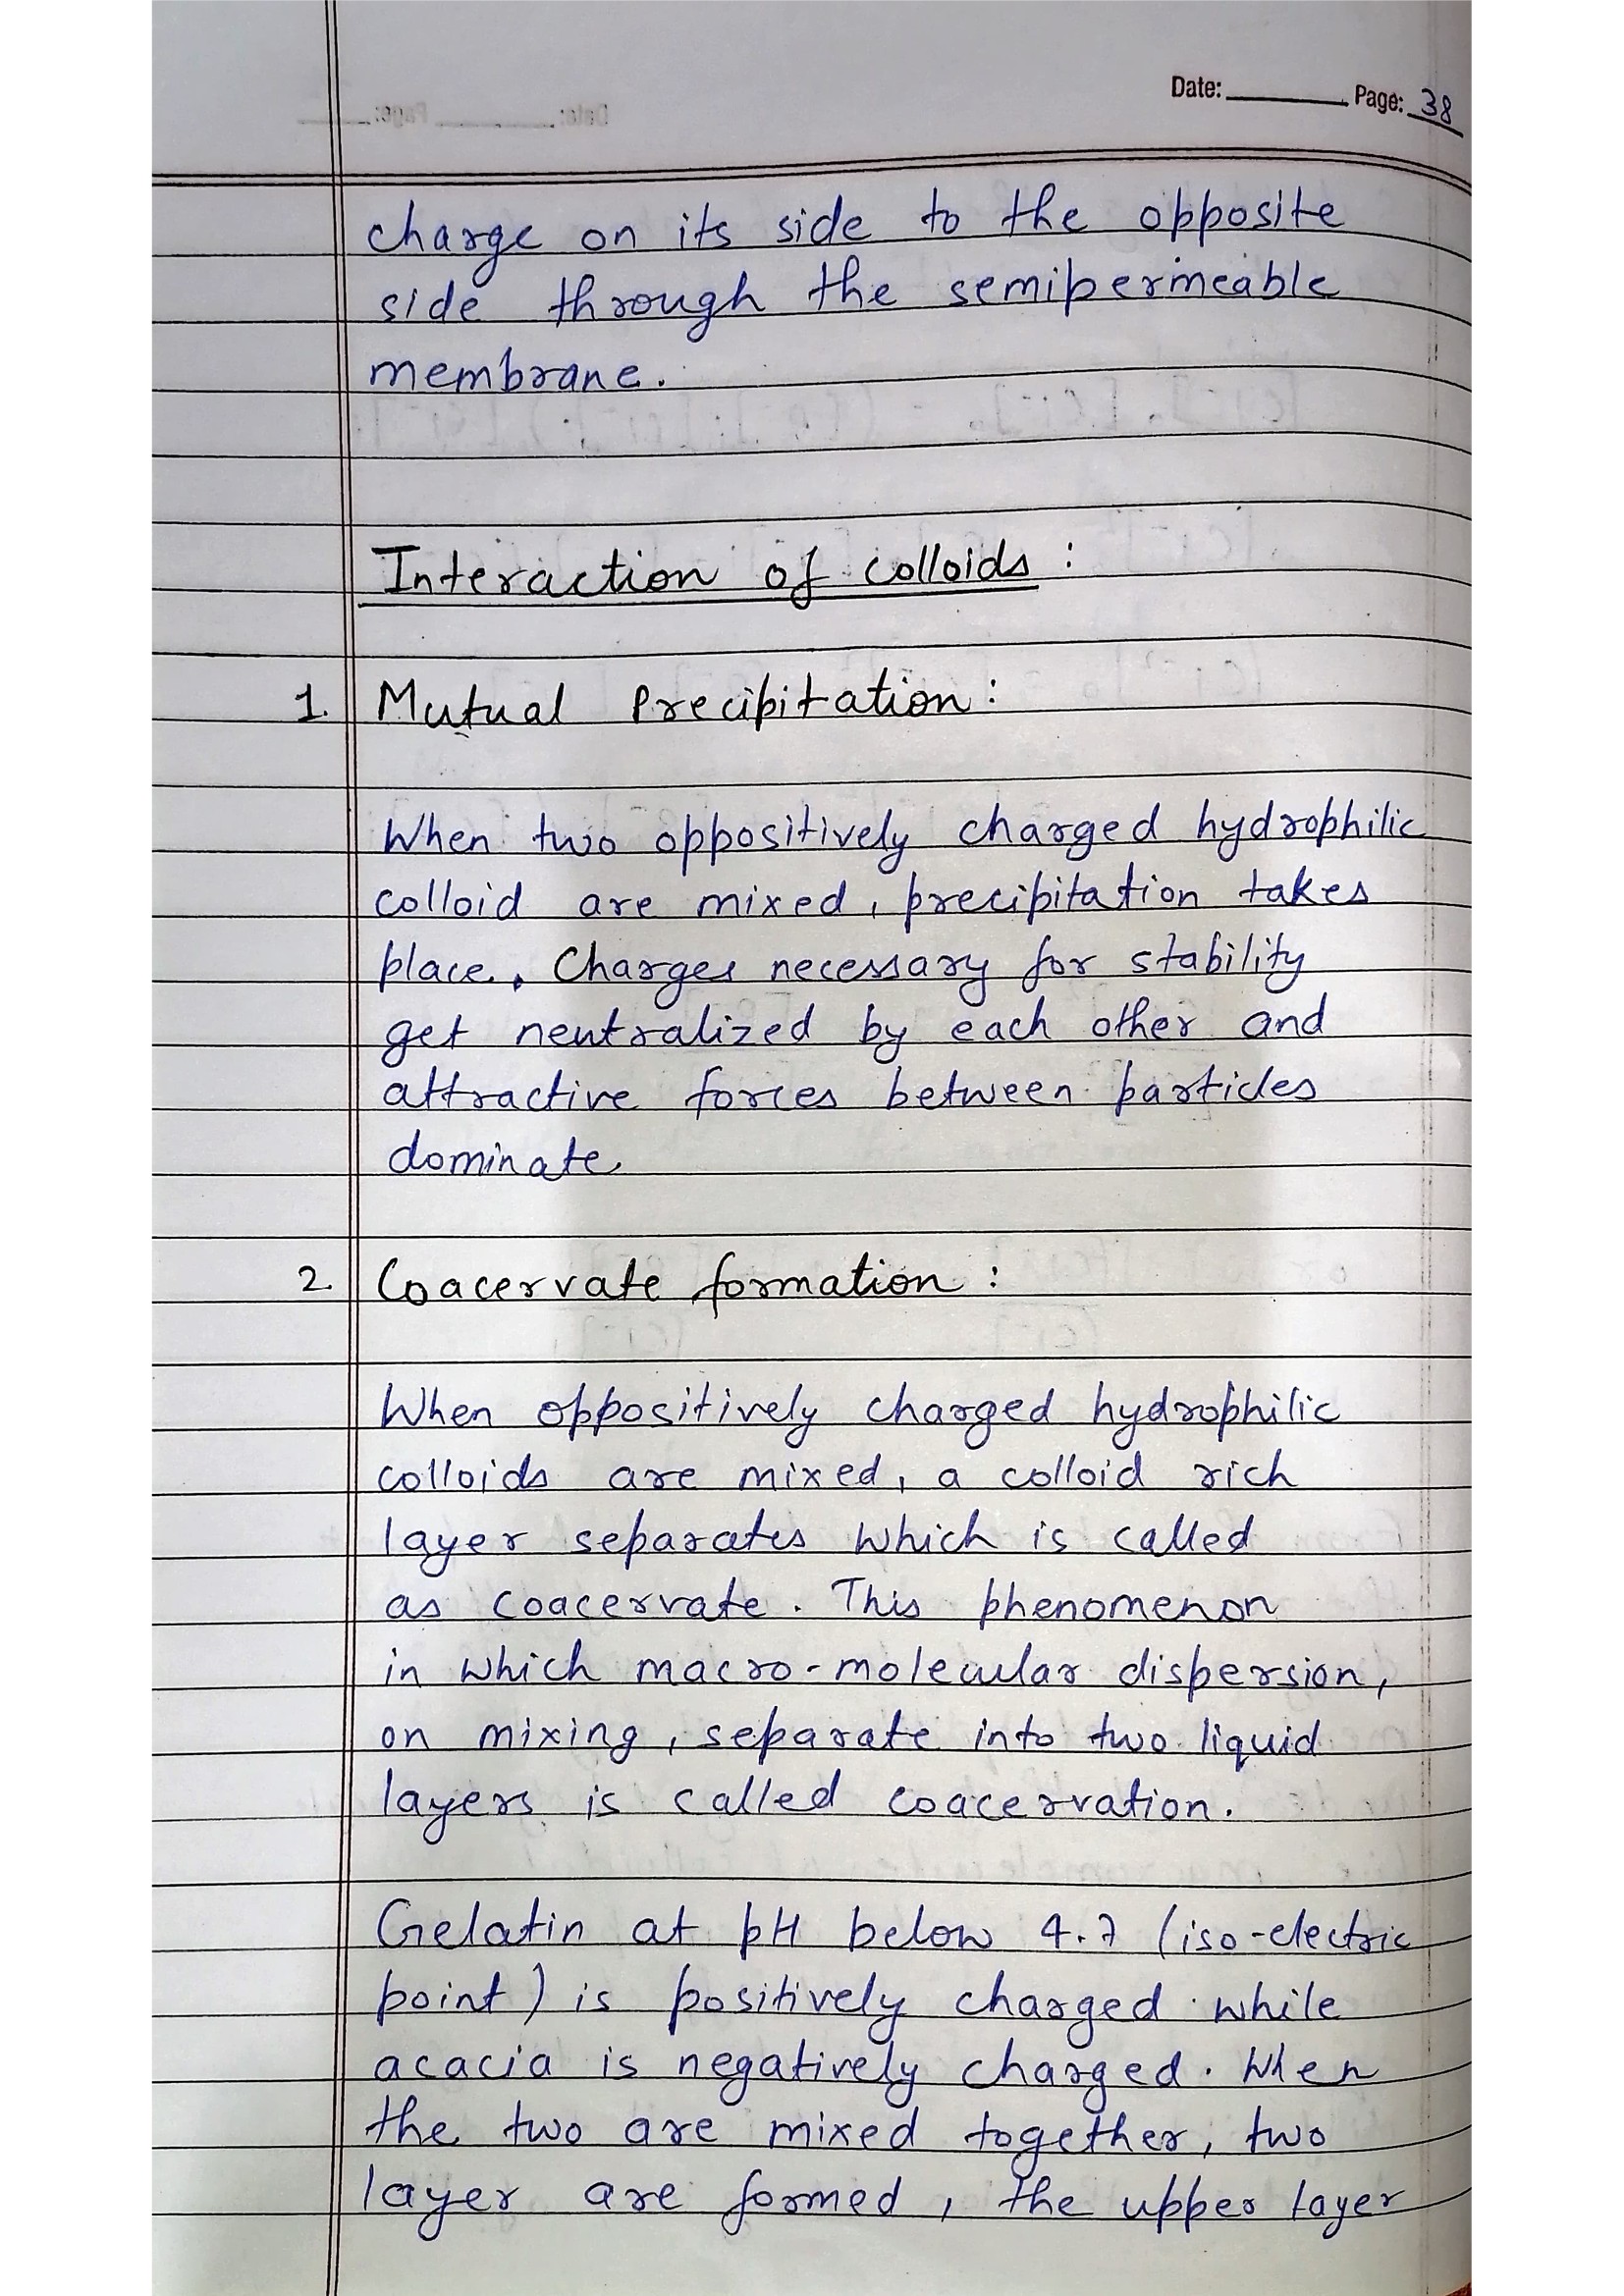 Date: Page: 38
charge on its side to the opposite
side through the semipermeable
membrane.
Interaction of colloids :
1. Mutual Precipitation :
When two oppositively charged hydrophilic
colloid are mixed, precipitation takes
place. Charges necessary for stability
get neutralized by each other and
attractive forces between particles
dominate.
2. Coacervate formation :
When oppositively charged hydrophilic
colloids are mixed, a colloid rich
layer separates which is called
as coacervate. This phenomenon
in which macro-molecular dispersion,
on mixing, separate into two liquid
layers is called coacervation.
Gelatin at pH below 4.7 (iso-electric
point) is positively charged while
acacia is negatively charged. When
the two are mixed together, two
layer are formed, the upper layer